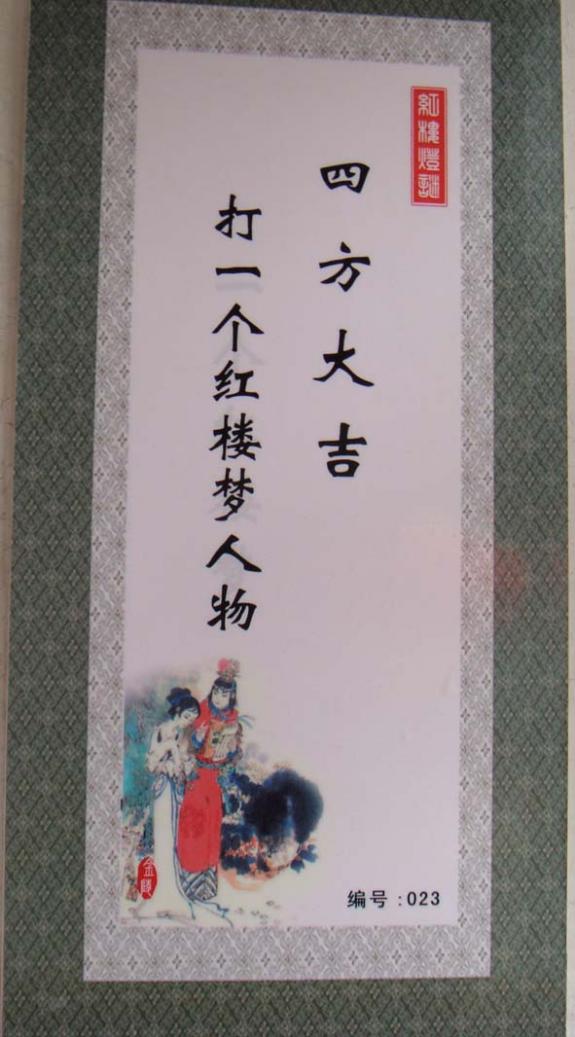 紅樓燈謎
四方大吉
打一个红楼梦人物
金陵
编号:023